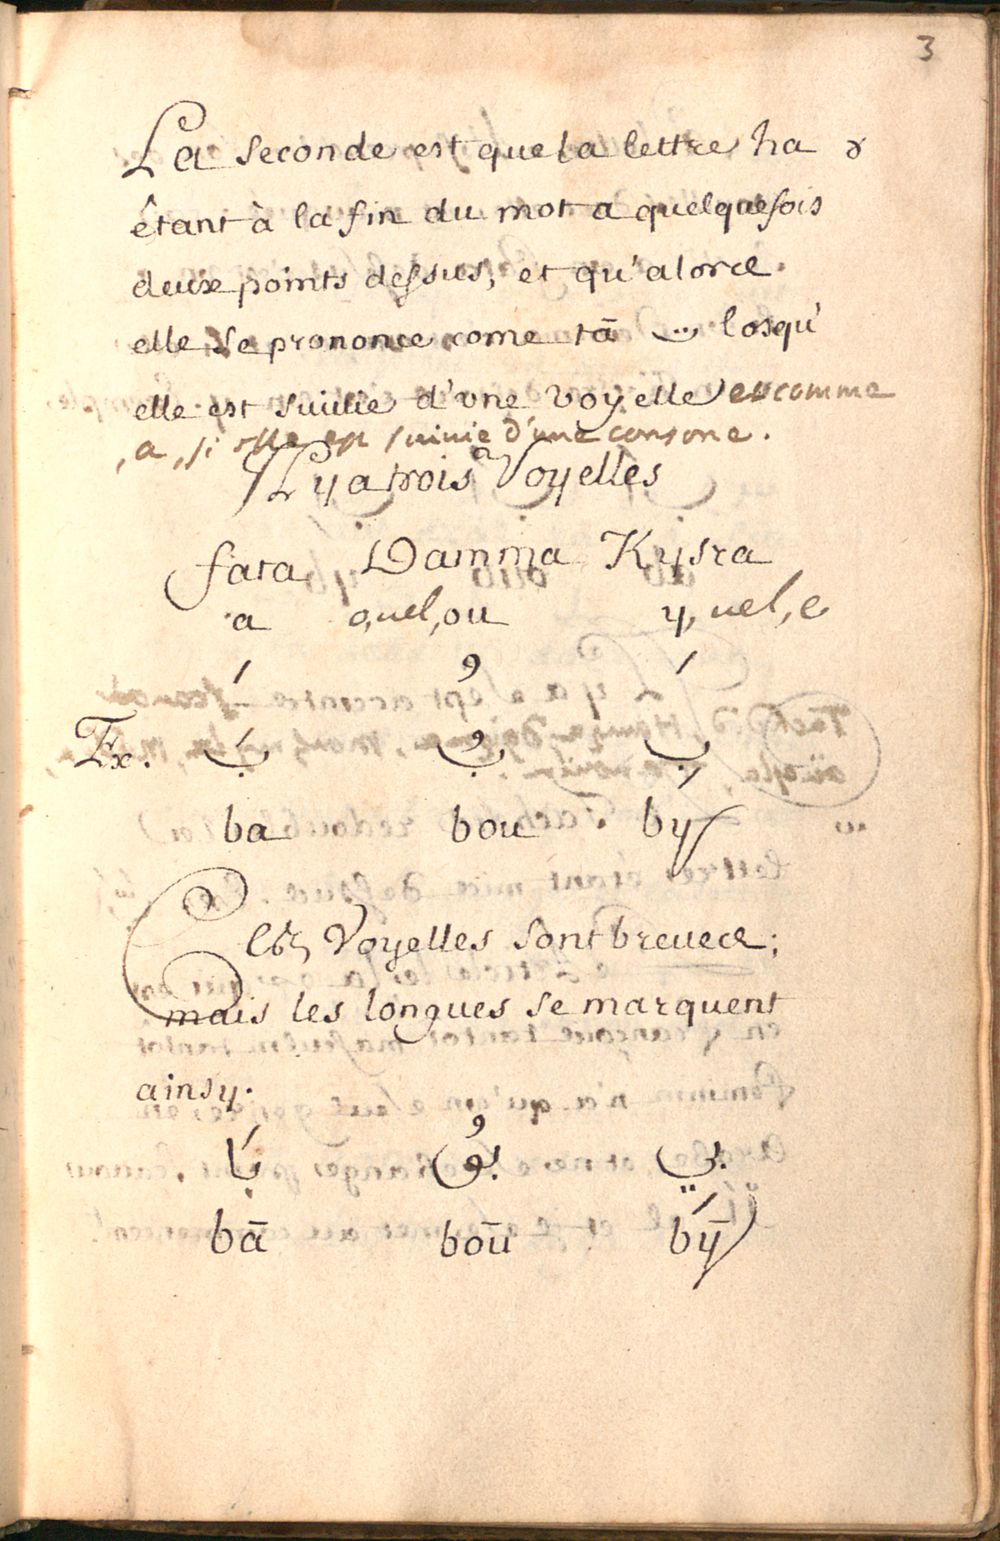 3
La seconde est que la lettre ha ४
êtant à la fin du mot a quelquefois
deux points dessus, et qu'alorce
elle se prononce come tā ت losqu'
elle est suiuie d'vne voyelle ou comme
a, si elle est suiuie d'une consone.
Il y a trois Voyelles
fata Damma Kysra
a o, uel, ou y, uel, e
َ ُ ِ
Ex. بَ بُ بِ
ba bou by
Ces Voyelles sont breuece;
mais les longues se marquent
ainsy.
بَا بُو بِي
bā boū bȳ